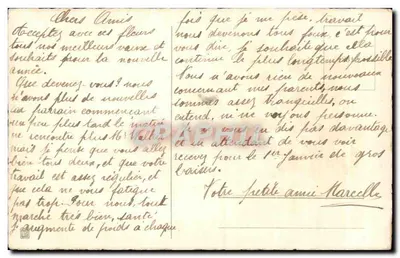 Chers Amis
Acceptez avec ces fleurs
tous nos meilleurs vœux et
souhaits pour la nouvelle
année.
Que devenez vous? nous
n'avons plus de nouvelles
un parrain commençant
un peu plus tard le matin
ne rencontre plus Mr
mais je pense que vous allez
bien tous deux, et que votre
travail est assez régulier, et
que cela ne vous fatigue
pas trop. Pour nous, tout
marche très bien, santé
j'augmente de poids à chaque
fois que je me pèse, travail
nous devenons tous fous, c'est pour
vous dire. Je souhaite que cela
continue le plus longtemps possible
Nous n'avons rien de nouveau
concernant mes parents, nous
sommes assez tranquilles, on
entend, ni ne voyons personne.
Je ne vous en dis pas davantage
et en attendant de vous voir
recevez pour le 1er Janvier de gros
baisers.
Votre petite amie Marcelle